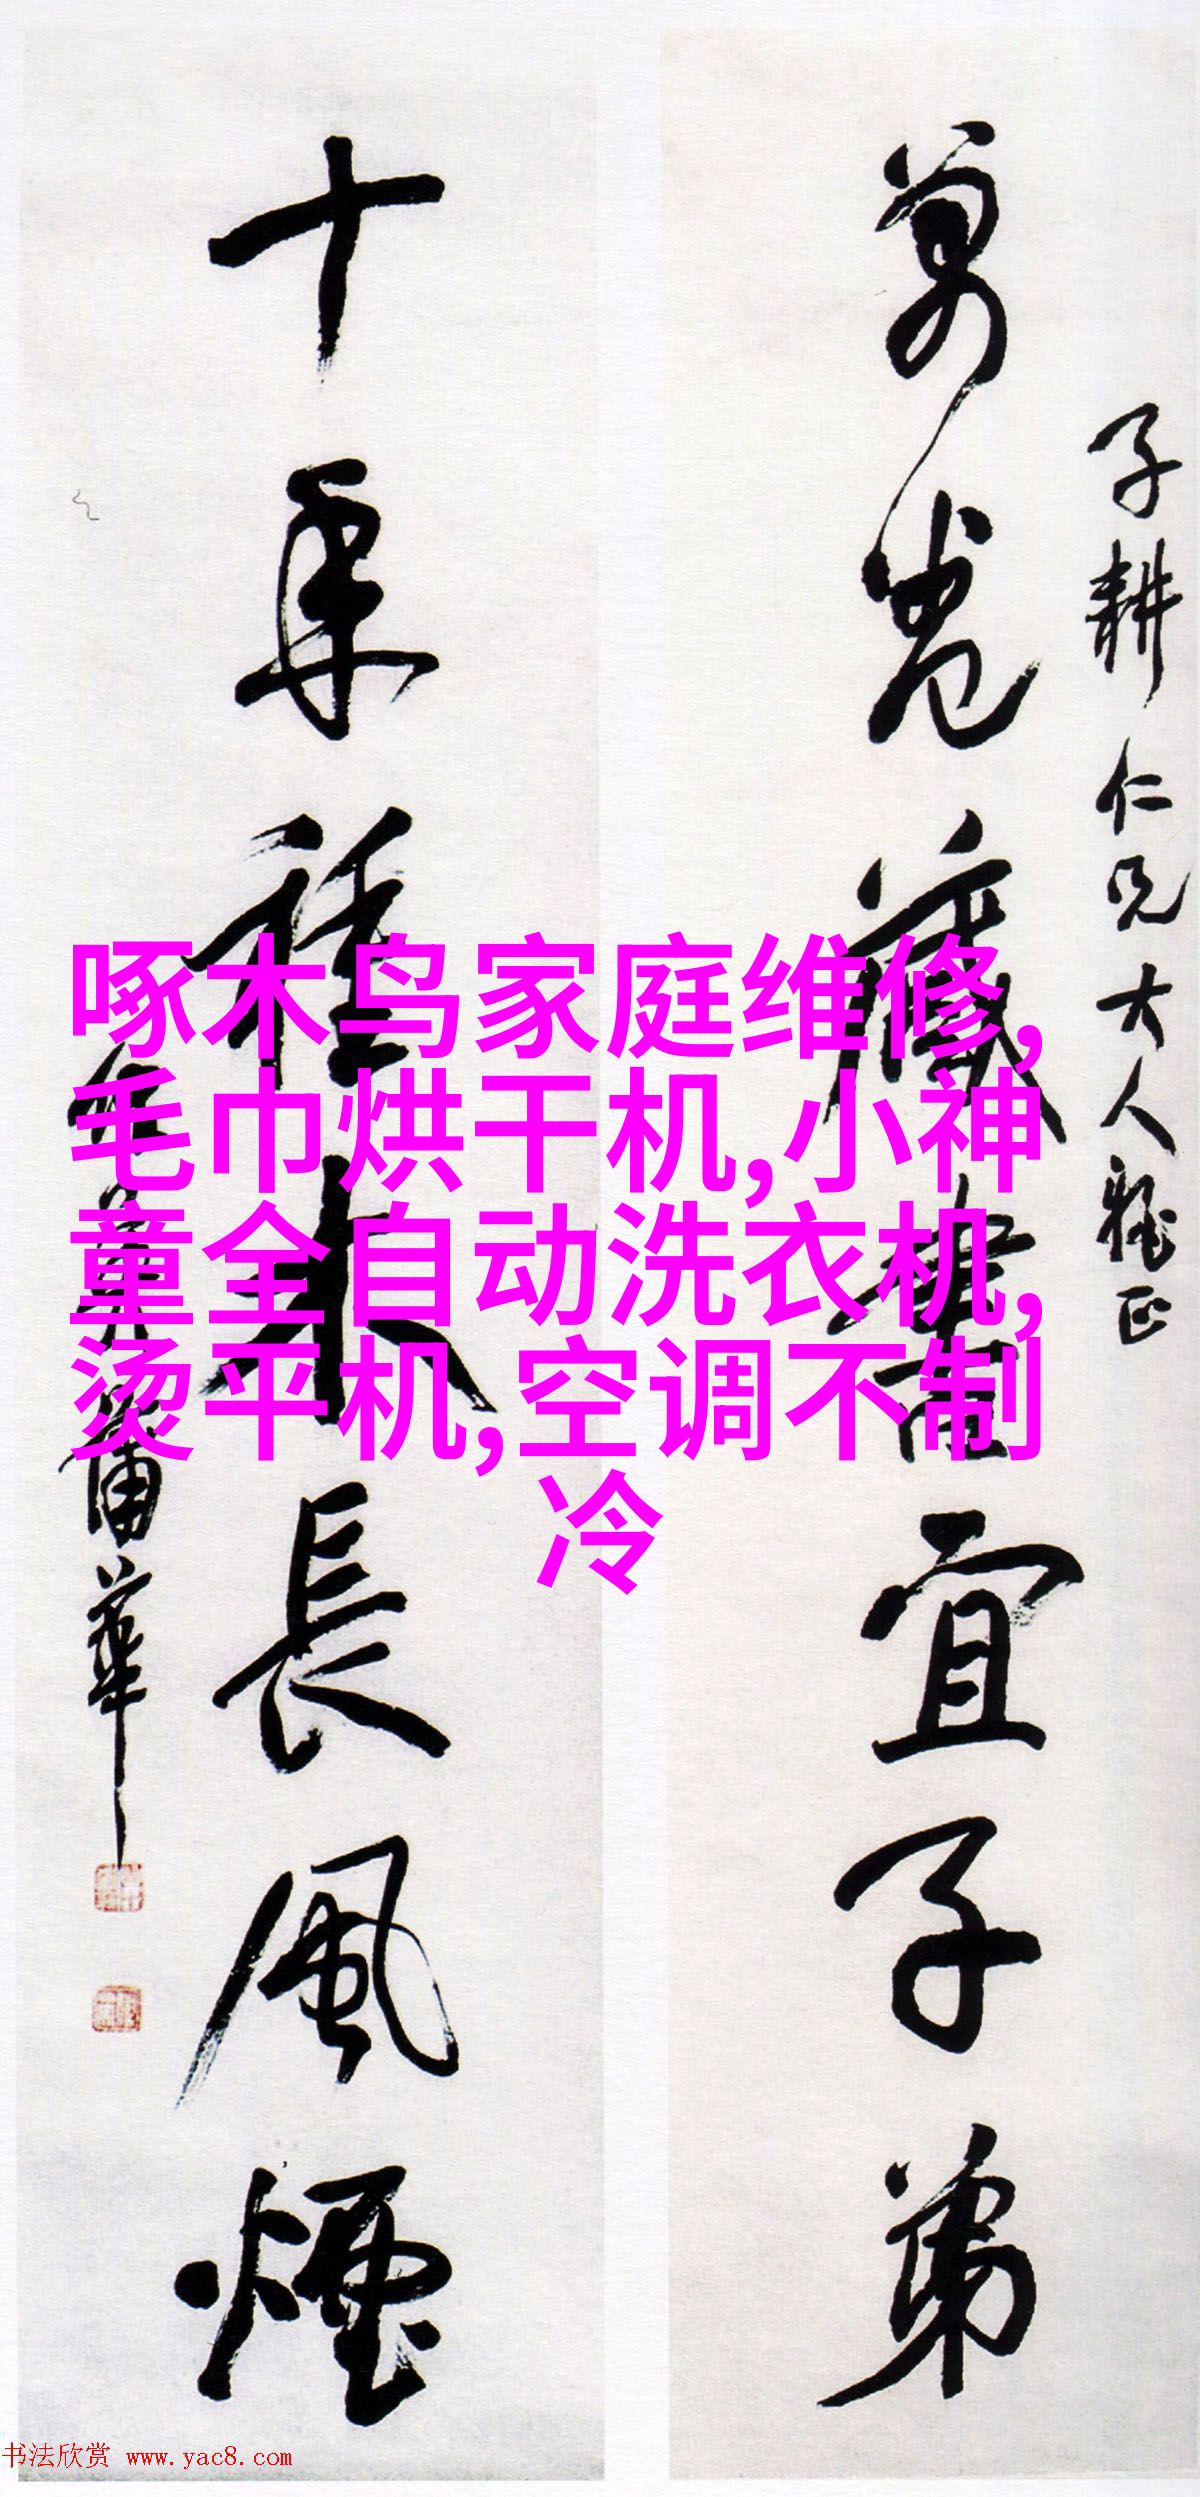 子耕仁兄大人雅正
万卷藏書宜子弟
十年種木長風煙
作英蒲華
啄木鸟家庭维修,
毛巾烘干机,小神
童全自动洗衣机,
烫平机,空调不制
冷
书法欣赏 www.yac8.com